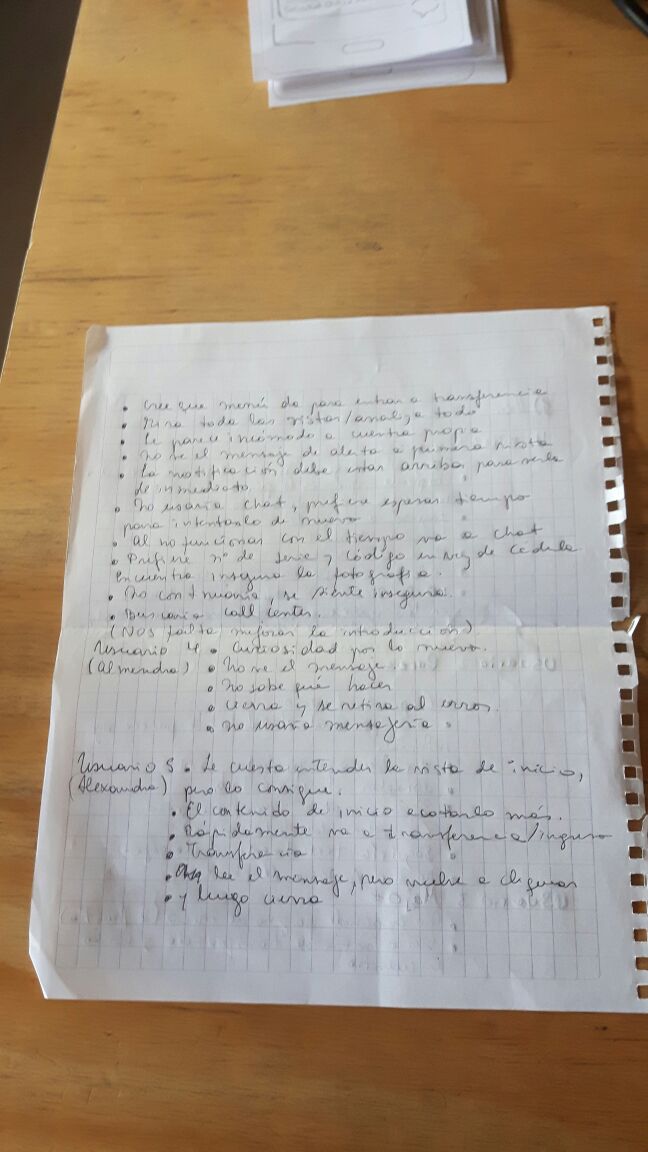 • Cree que menú da para entrar a transferencia
• Mira todas las vistas/analiza todo
• Le parece incómodo a cuenta propia
• No ve el mensaje de alerta a primera vista
• La notificación debe estar arriba para verla
de inmediato
• No usaría chat, prefiere esperar tiempo
para intentarlo de nuevo
• Al no funcionar con el tiempo va a chat
• Prefiere n° de serie y código en vez de cédula
Encuentra insegura la fotografía.
• No continuaría, se siente insegura.
• Buscaría call center.
(Nos falta mejorar la introducción)
Usuario 4 • Curiosidad por lo nuevo.
(Almendra) • No ve el mensaje.
• No sabe qué hacer
• Cierra y se retira al error.
• No usaría mensajería
Usuario 5 • Le cuesta entender la vista de inicio,
(Alexandra) pero lo consigue.
• El contenido de inicio acotarlo más.
• Rápidamente va a transferencia/ingreso
• Transferencia
• lee el mensaje, pero vuelve a cliquear
• y luego cierra